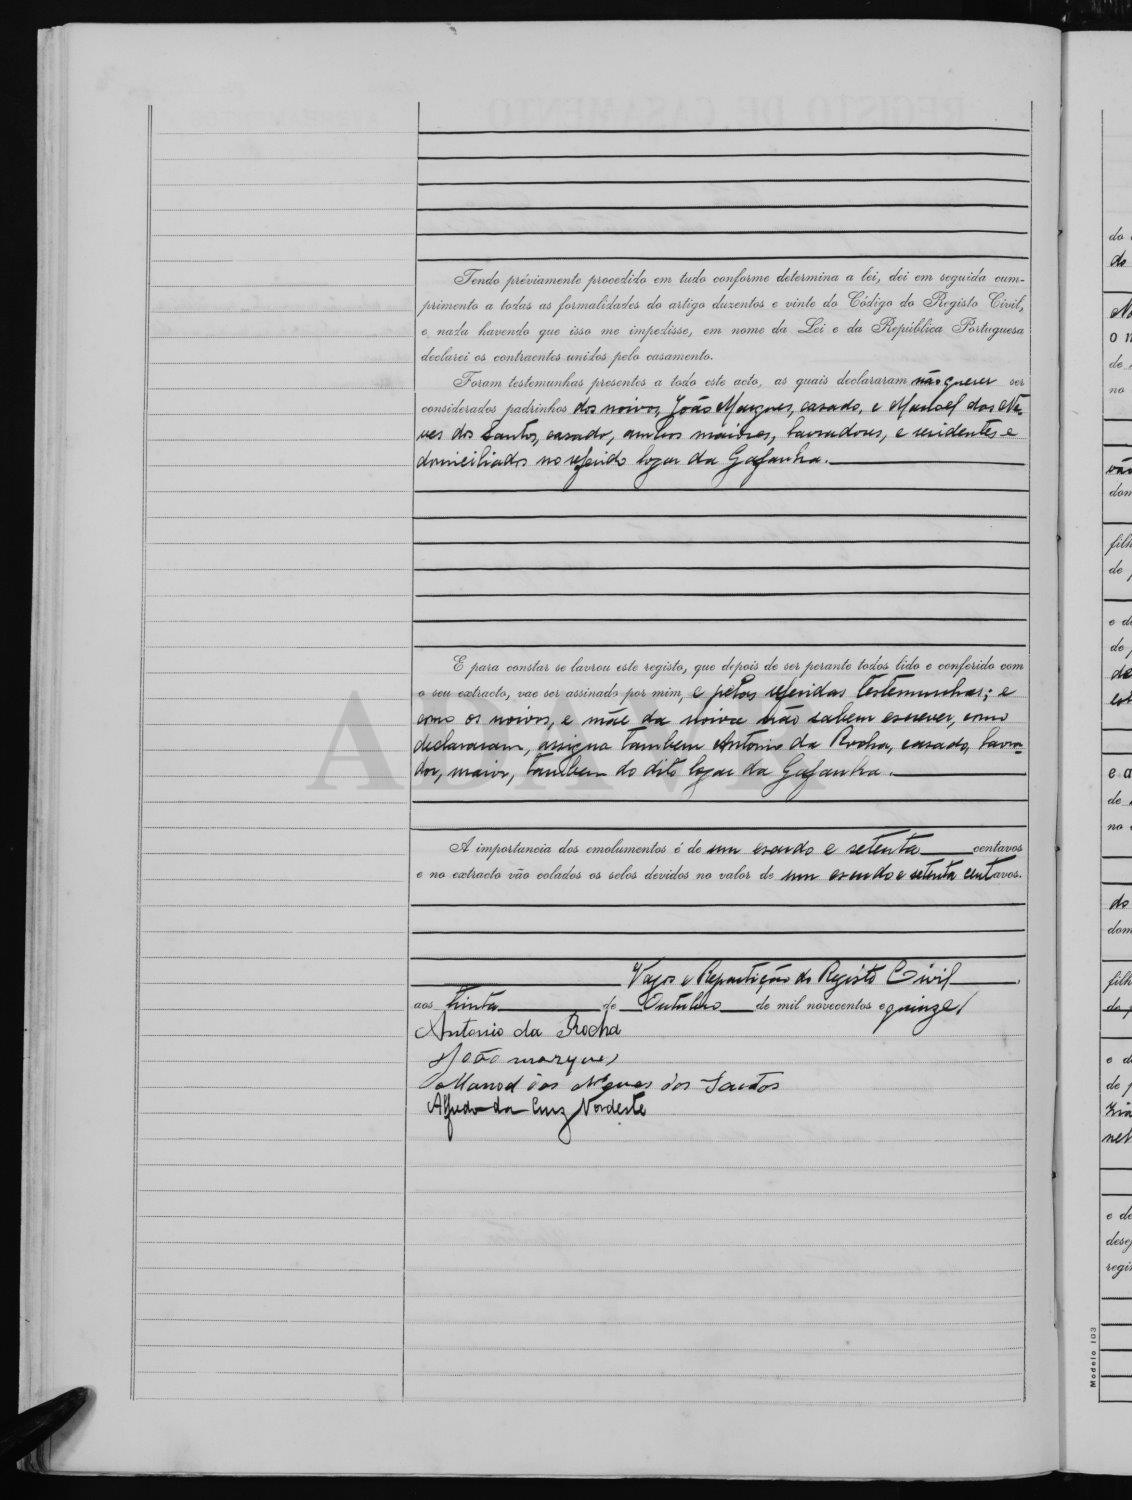 Tendo préviamente procedido em tudo conforme determina a lei, dei em seguida cum-
primento a todas as formalidades do artigo duzentos e vinte do Código do Registo Civil,
e nada havendo que isso me impedisse, em nome da Lei e da República Portuguesa
declarei os contraentes unidos pelo casamento.
Foram testemunhas presentes a todo este acto, as quais declararam não querer ser
considerados padrinhos dos noivos, João Marques, casado, e Manoel dos Ne-
ves dos Santos, casado, ambos maiores, lavradores, e residentes e
domiciliados no referido logar da Gafanha.
E para constar se lavrou este registo, que depois de ser perante todos lido e conferido com
o seu extracto, vae ser assinado por mim, e pelas referidas testemunhas; e
como os noivos, e mãe da noiva não sabem escrever, como
declararam, assigna tambem Antonio da Rocha, casado, lavra-
dor, maior, tambem do dito logar da Gafanha.
ADAVR
A importancia dos emolumentos é de um escudo e setenta centavos
e no extracto vão colados os selos devidos no valor de um escudo e setenta centavos.
Vagos e Repartição do Registo Civil,
aos trinta de Outubro de mil novecentos e quinze
Antonio da Rocha
João marques
Manoel dos Neves dos Santos
Alfredo da Cruz Nordeste
Modelo 103